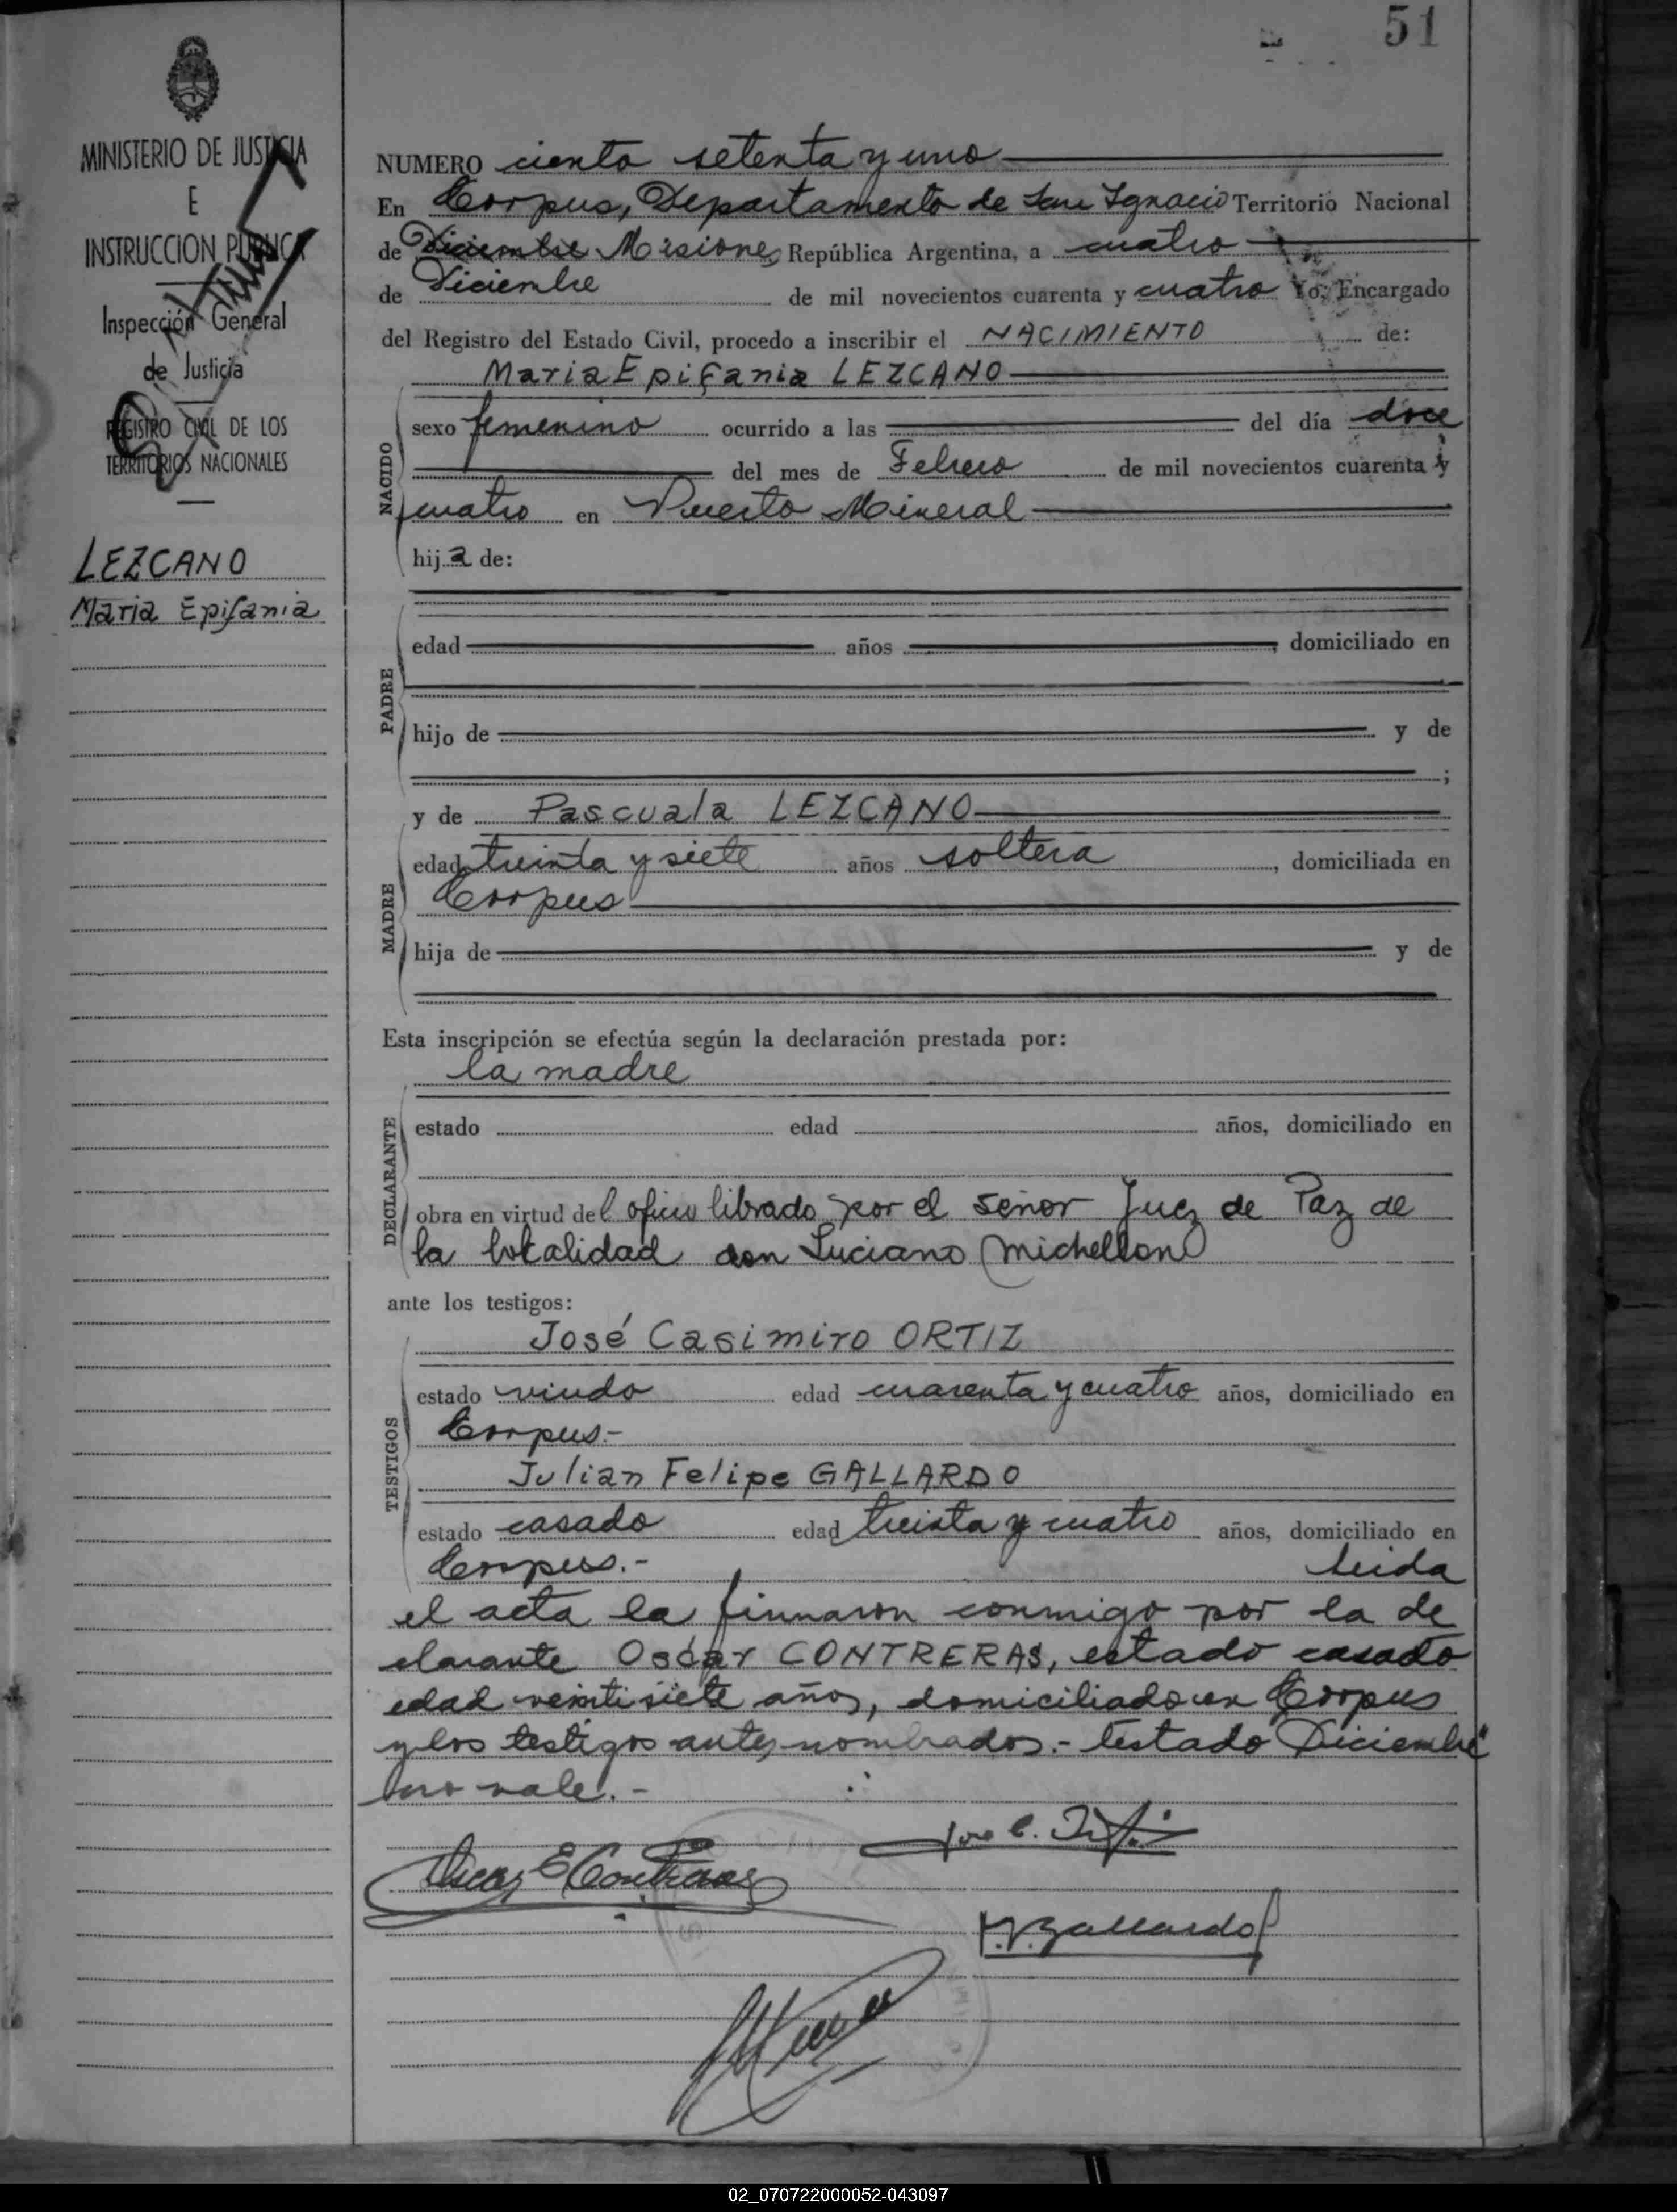 51
MINISTERIO DE JUSTICIA
E
INSTRUCCION PUBLICA
Inspección General
de Justicia
REGISTRO CIVIL DE LOS
TERRITORIOS NACIONALES
LEZCANO
Maria Epifania
NUMERO ciento setenta y uno
En Corpus, Departamento de San Ignacio Territorio Nacional
de Diciembre Misiones República Argentina, a cuatro
de Diciembre de mil novecientos cuarenta y cuatro Yo, Encargado
del Registro del Estado Civil, procedo a inscribir el NACIMIENTO de:
Maria Epifania LEZCANO
NACIDO
sexo femenino ocurrido a las del día doce
del mes de Febrero de mil novecientos cuarenta y
cuatro en Puerto Mineral
hija de:
PADRE
edad años , domiciliado en
hijo de y de
;
y de Pascuala LEZCANO
MADRE
edad treinta y siete años soltera , domiciliada en
Corpus
hija de y de
Esta inscripción se efectúa según la declaración prestada por:
la madre
DECLARANTE
estado edad años, domiciliado en
obra en virtud del oficio librado por el señor Juez de Paz de
la localidad don Luciano Michellon
ante los testigos:
José Casimiro ORTIZ
TESTIGOS
estado viudo edad cuarenta y cuatro años, domiciliado en
Corpus.-
Julian Felipe GALLARDO
estado casado edad treinta y cuatro años, domiciliado en
Corpus.- Leida
el acta la firmaron conmigo por la de
clarante Oscar CONTRERAS, estado casado
edad veintisiete años, domiciliado en Corpus
y los testigos antes nombrados.- testado Diciembre"
no vale.-
Jose C.
Oscar E Contreras
J.F. Gallardo
02_070722000052-043097